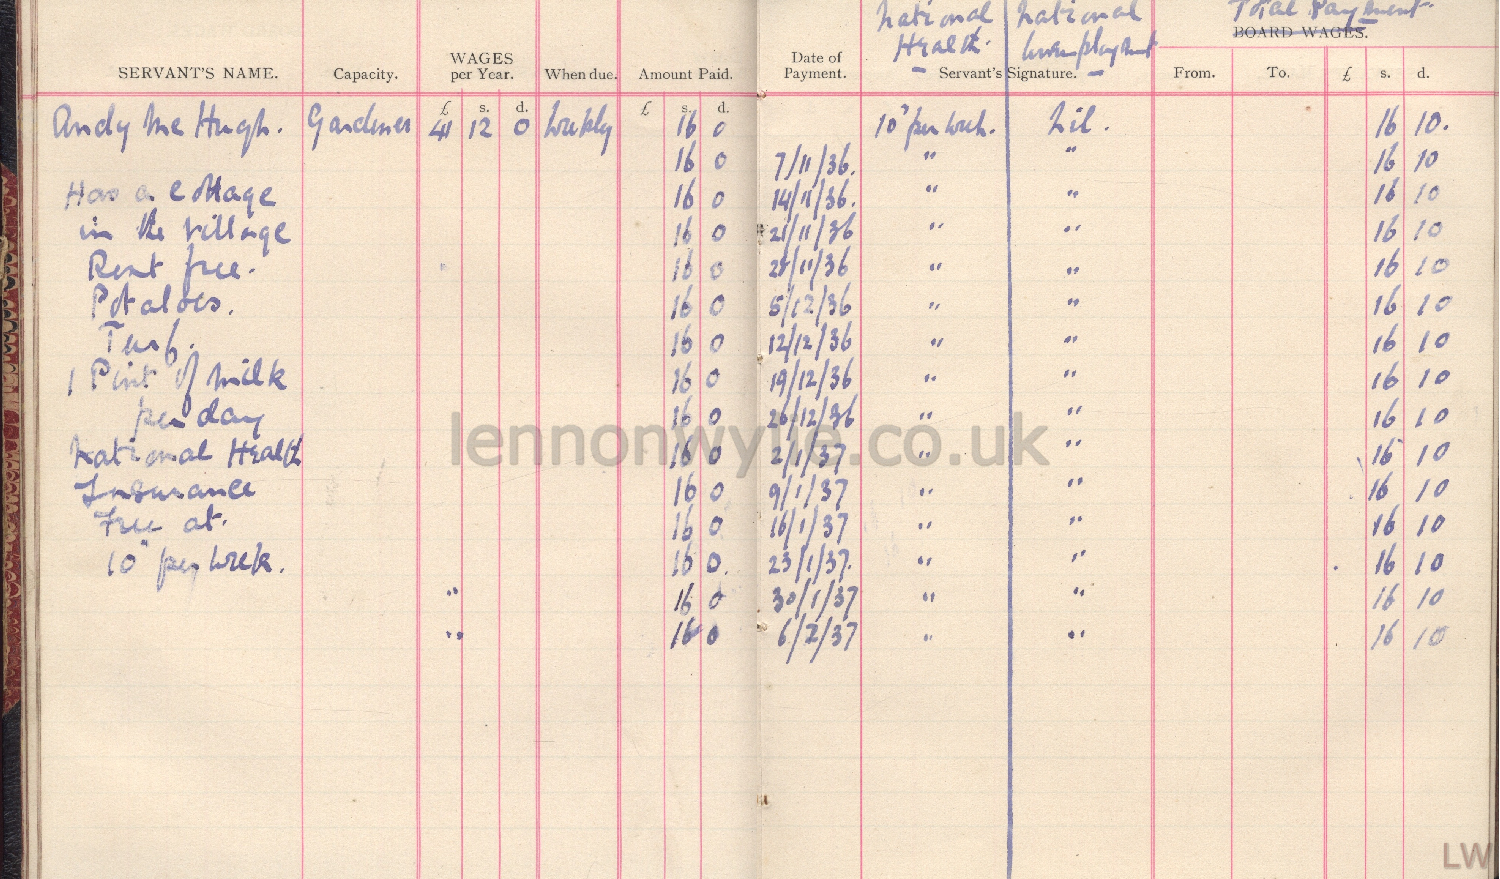 National National Total Payment
Health. Unemployment BOARD WAGES.
SERVANT'S NAME. Capacity. WAGES per Year. When due. Amount Paid. Date of Payment. Servant's Signature. From. To. £ s. d.
£ s. d. £ s. d.
Andy Mc Hugh. Gardener 41 12 0 Weekly 16 0 10" per week. Nil. 16 10.
16 0 7/11/36. " " 16 10
Has a cottage 16 0 14/11/36. " " 16 10
in the village 16 0 21/11/36 " " 16 10
Rent free. 16 0 28/11/36 " " 16 10
Potatoes. 16 0 5/12/36 " " 16 10
Turf. 16 0 12/12/36 " " 16 10
1 Pint of milk 16 0 19/12/36 " " 16 10
per day 16 0 26/12/36 " " 16 10
National Health 16 0 2/1/37 " " 16 10
Insurance 16 0 9/1/37 " " 16 10
Free at. 16 0 16/1/37 " " 16 10
10" per week. 16 0. 23/1/37. " " 16 10
" 16 0 30/1/37 " " 16 10
" 16 0 6/2/37 " " 16 10
lennonwylie.co.uk
LW